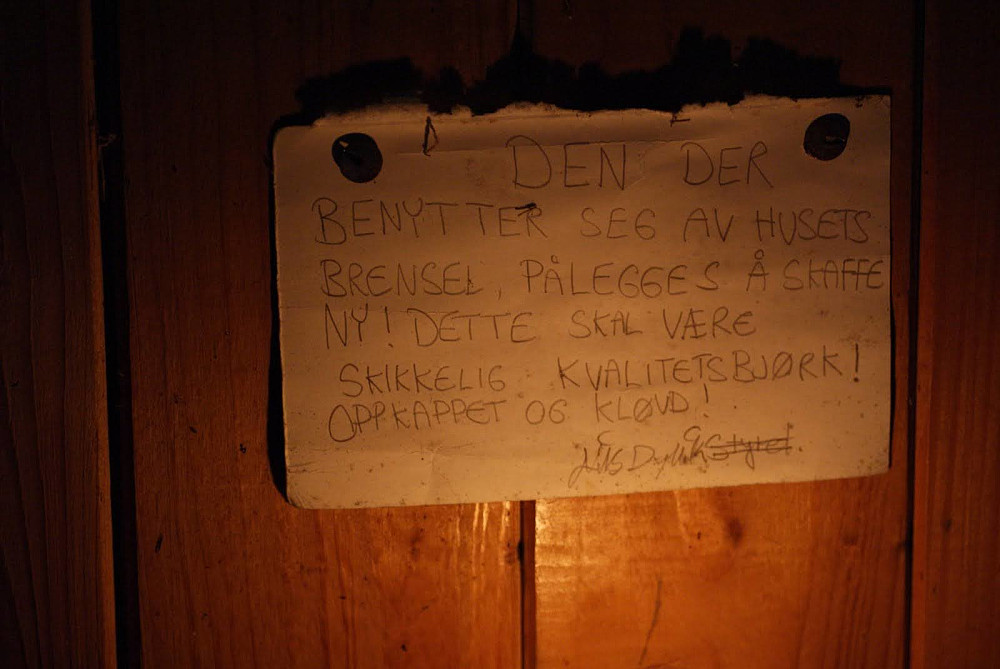 DEN DER
BENYTTER SEG AV HUSETS
BRENSEL, PÅLEGGES Å SKAFFE
NY! DETTE SKAL VÆRE
SKIKKELIG KVALITETSBJØRK!
OPPKAPPET OG KLØVD!
Styret.